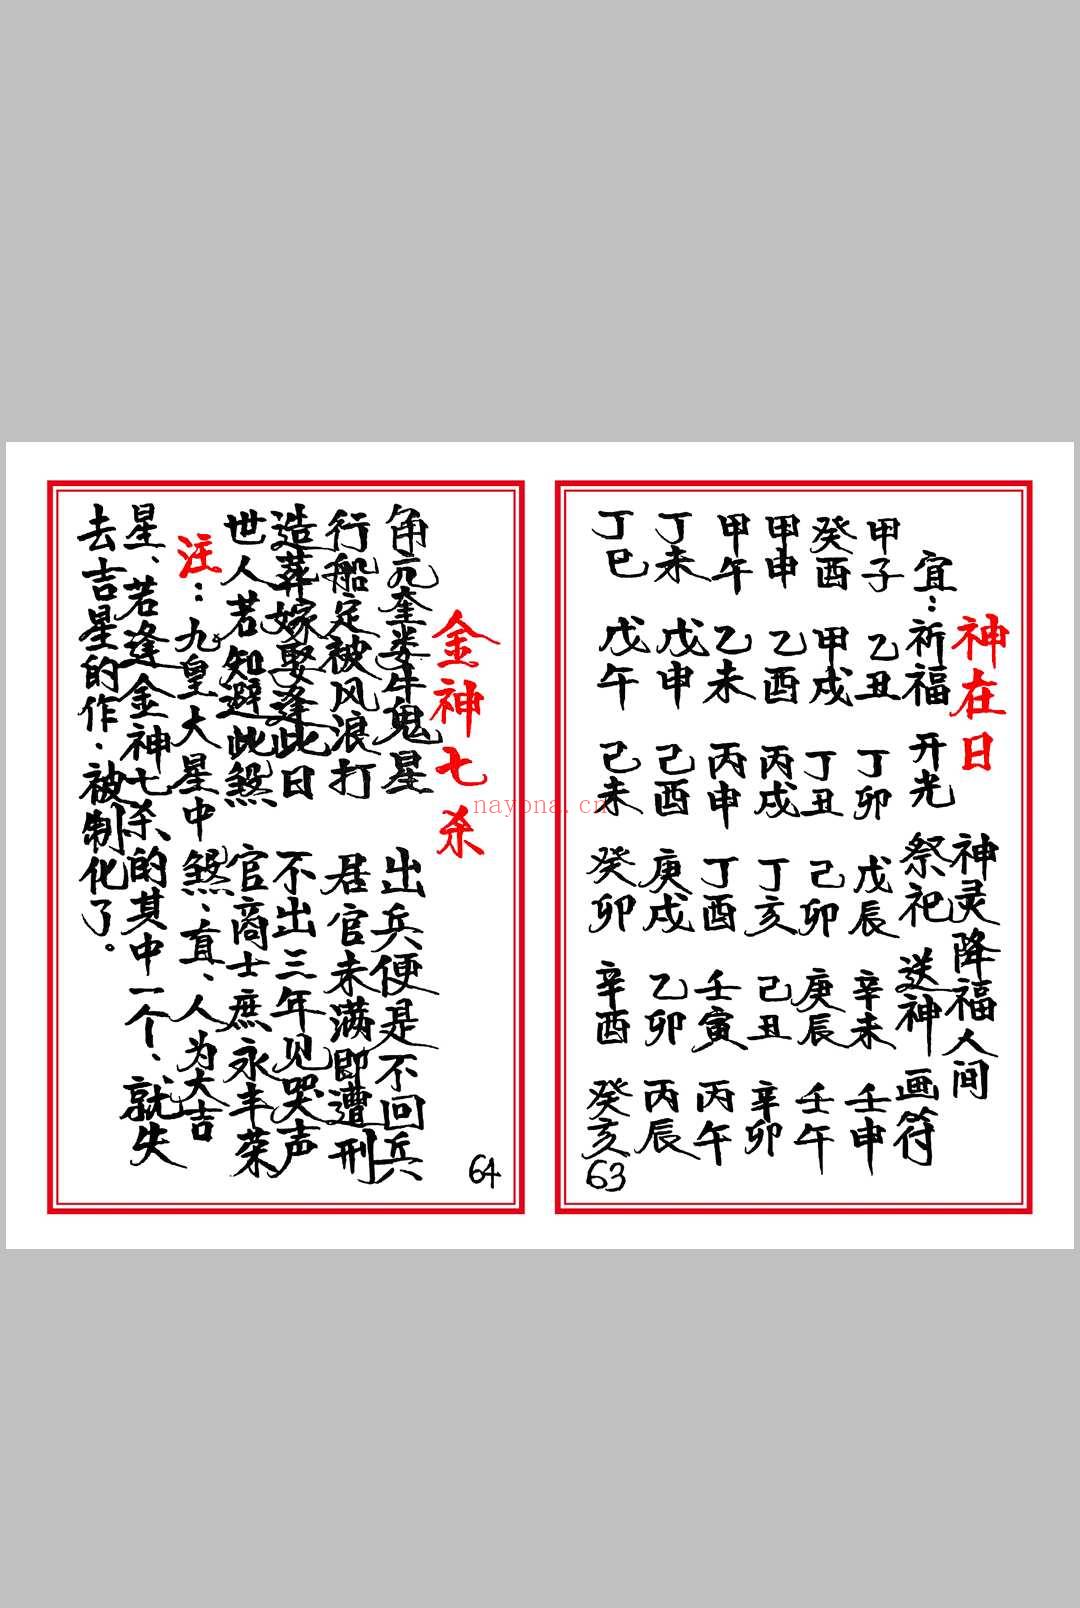 神在日 神灵降福人间
宜：祈福 开光 祭祀 送神 画符
甲子 乙丑 丁卯 戊辰 辛未 壬申
癸酉 甲戌 丁丑 己卯 庚辰 壬午
甲申 乙酉 丙戌 丁亥 己丑 辛卯
甲午 乙未 丙申 丁酉 壬寅 丙午
丁未 戊申 己酉 庚戌 乙卯 丙辰
丁巳 戊午 己未 癸卯 辛酉 癸亥
63
金神七杀
角亢奎娄牛鬼星 出兵便是不回兵
行船定被风浪打 居官未满即遭刑
造葬嫁娶逢此日 不出三年见哭声
世人若知避此煞 官商士庶永丰荣
注：九皇大星中煞、直、人为大吉
星、若逢金神七杀的其中一个、就失
去吉星的作.被制化了。
64
nayona.cn